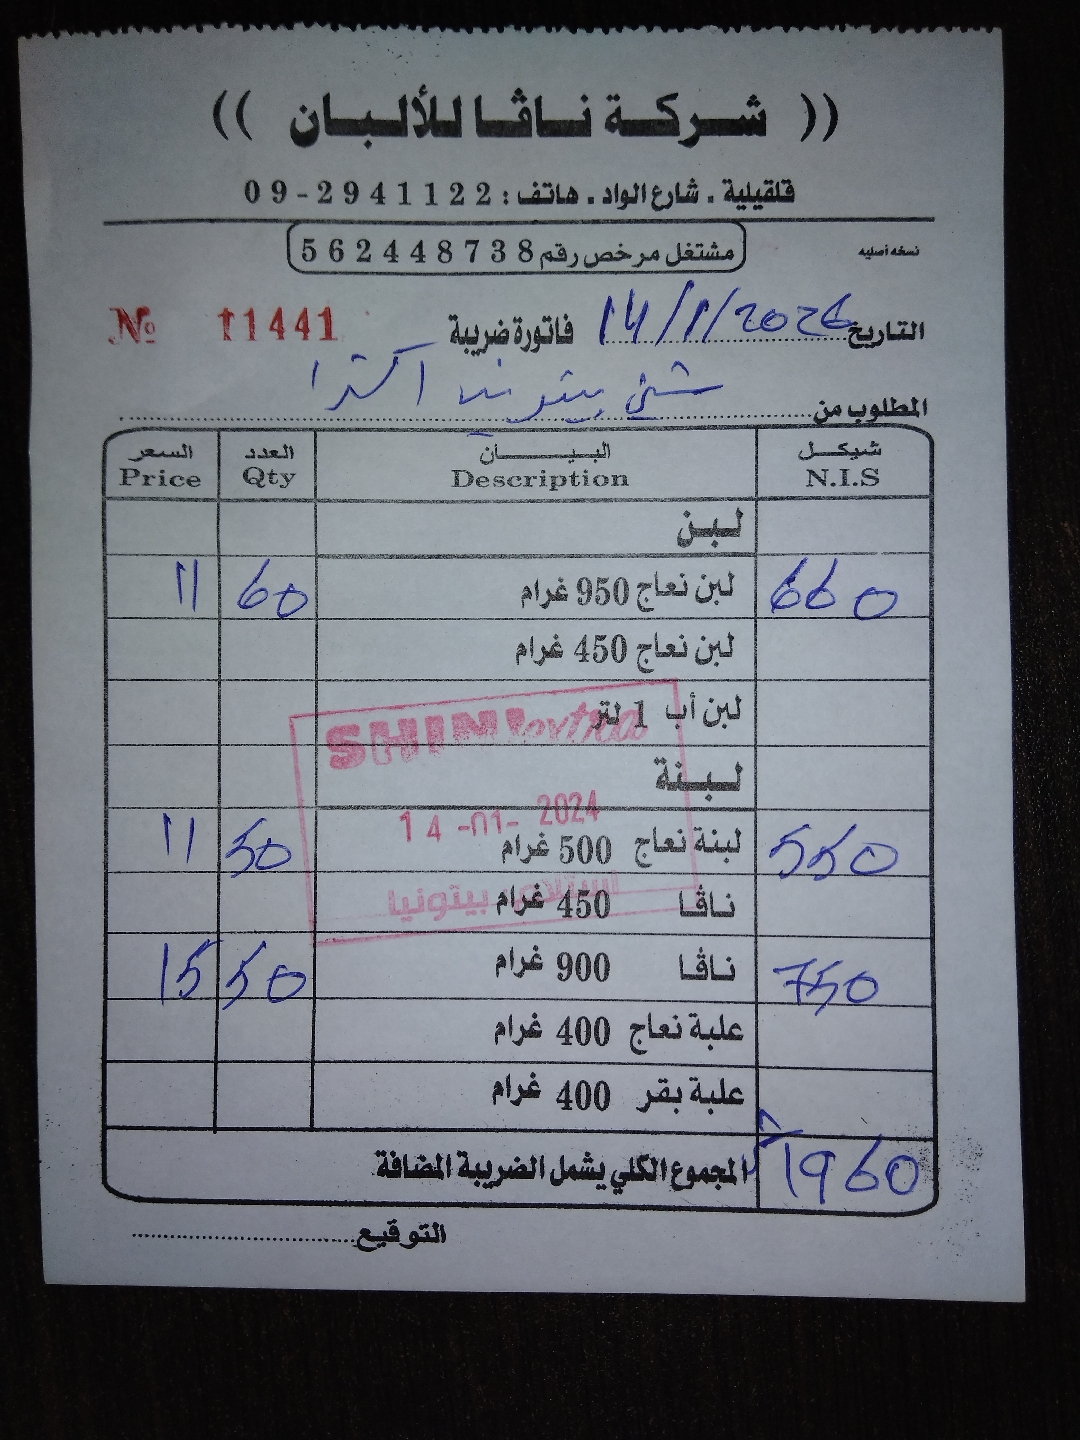 (( شركة ناڤا للألبان ))
قلقيلية . شارع الواد . هاتف : 2941122-09
نسخه أصليه
مشتغل مرخص رقم 562448738
التاريخ 14/1/2024
فاتورة ضريبة
№ 11441
المطلوب من شني بيتونيا اكسترا
شيكل البيـــان العدد السعر
N.I.S Description Qty Price
لبن
660 لبن نعاج 950 غرام 60 11
لبن نعاج 450 غرام
لبن أب 1 لتر
SHINI extra
لبنة
14-01-2024
550 لبنة نعاج 500 غرام 50 11
ناڤا 450 غرام
استلام بيتونيا
750 ناڤا 900 غرام 50 15
علبة نعاج 400 غرام
علبة بقر 400 غرام
1960 المجموع الكلي يشمل الضريبة المضافة
التوقيع